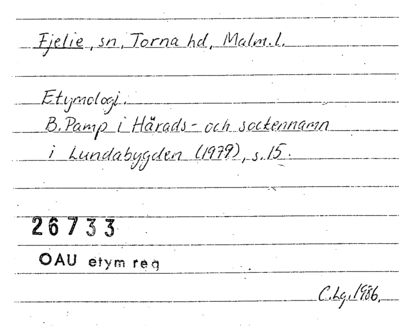 Fjelie, sn, Torna hd, Malm.l.
Etymologi.
B. Pamp i Härads- och sockennamn
i Lundabygden (1979), s. 15.
26733
OAU etym reg
C.Lg. 1986.